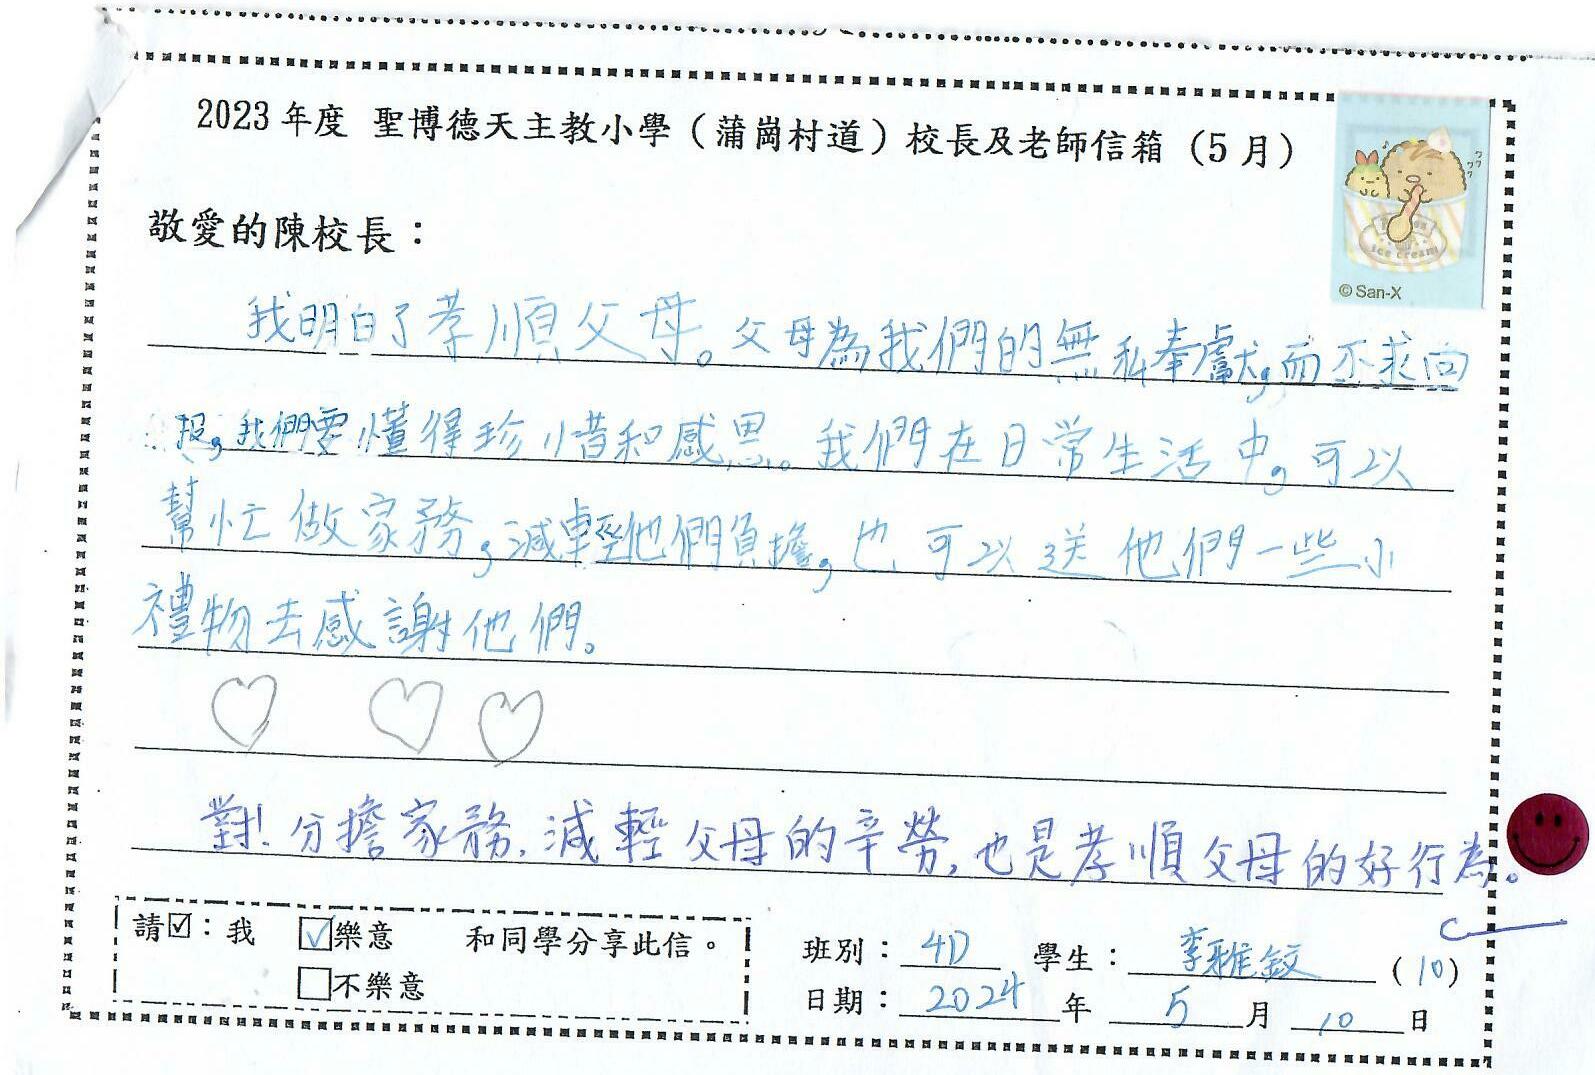 2023 年度 聖博德天主教小學（蒲崗村道）校長及老師信箱（5 月）
敬愛的陳校長：
我明白了孝順父母。父母為我們的無私奉獻，而不求回
報，我們要懂得珍惜和感恩。我們在日常生活中，可以
幫忙做家務，減輕他們負擔，也可以送他們一些小
禮物去感謝他們。
對！分擔家務，減輕父母的辛勞，也是孝順父母的好行為。
請☑：我 ☑樂意 和同學分享此信。
□不樂意
班別：4D 學生：李雅鈫（10）
日期：2024年 5月 10日
ice cream
© San-X